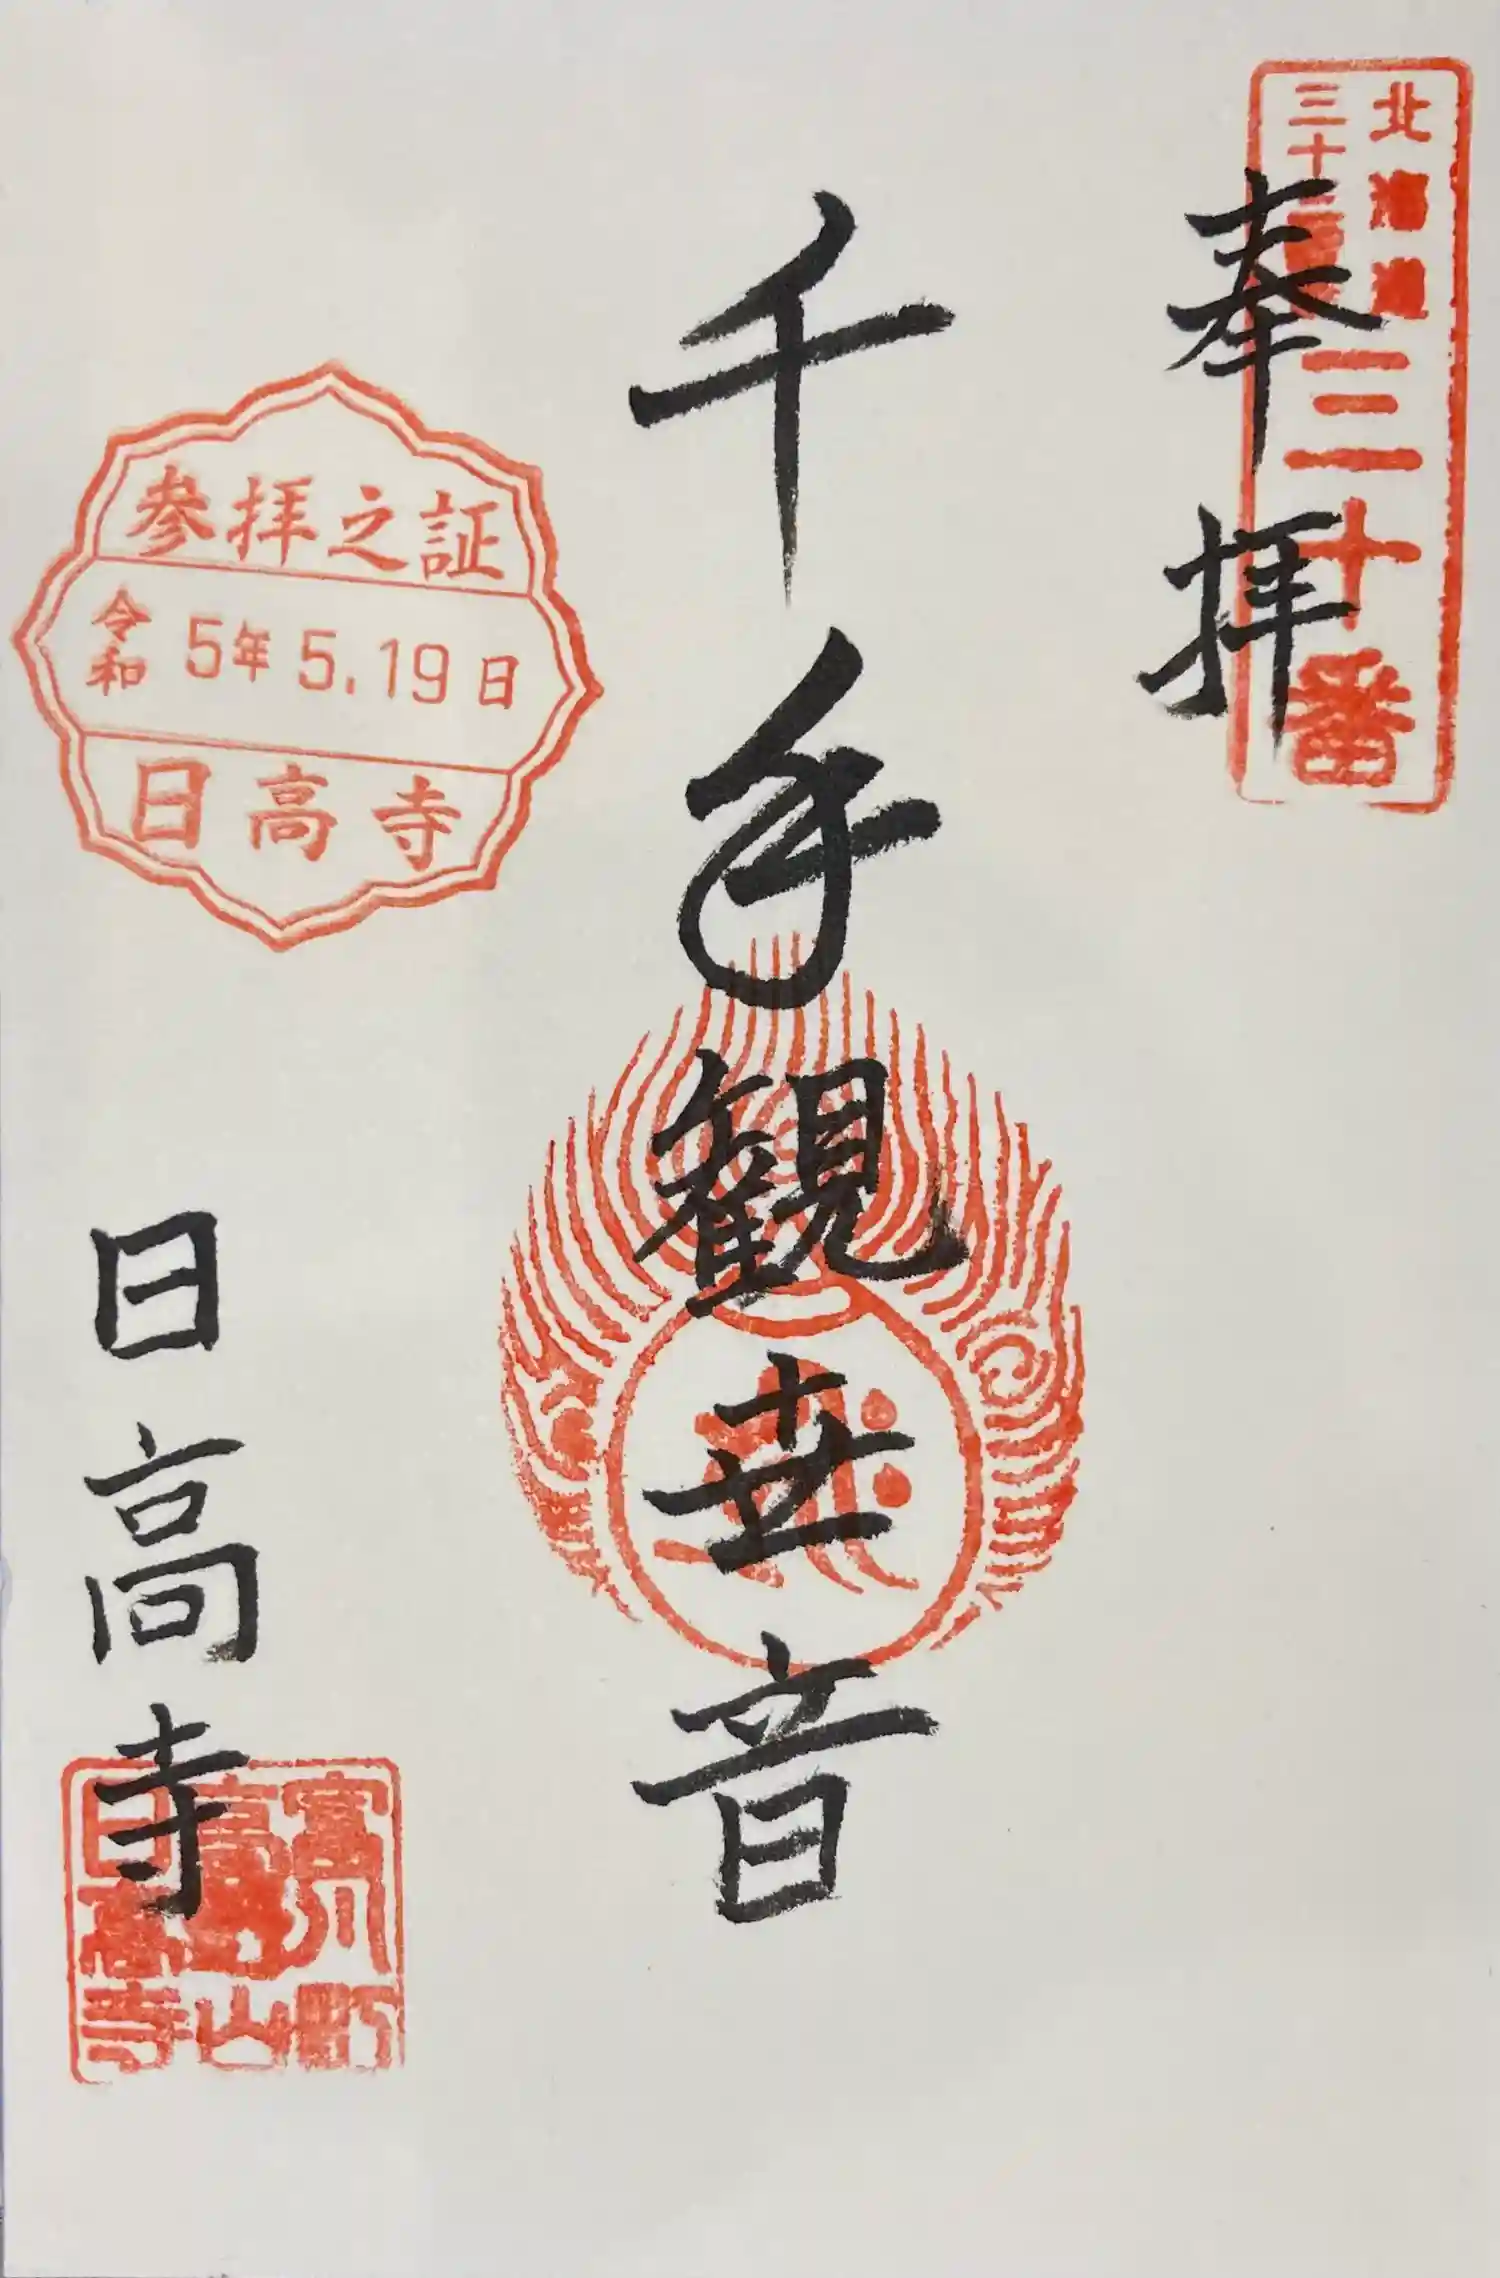 北海道
三十三
三十番
奉拝
千手観世音
参拝之証
令和 5年5.19日
日高寺
日高寺
富川町
高山
日高寺